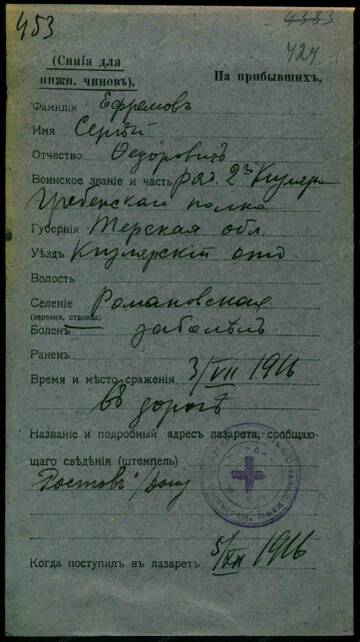 453
4383
424
(Синія для
нижн. чиновъ).
На прибывшихъ.
Фамилія Ефремовъ
Имя Сергѣй
Отчество Ѳедоровичъ
Воинское званіе и часть ряд. 2го Кизляро
Гребенскаго полка
Губернія Терская обл.
Уѣздъ Кизлярскій отд
Волость
Селеніе Романовская
(деревня, станица)
Боленъ заболѣлъ
Раненъ
Время и мѣсто сраженія 3/VII 1916
въ дорогѣ
Названіе и подробный адресъ лазарета, сообщаю-
щаго свѣдѣнія (штемпель)
Ростовъ Дону
Когда поступилъ въ лазаретъ 5/VII 1916